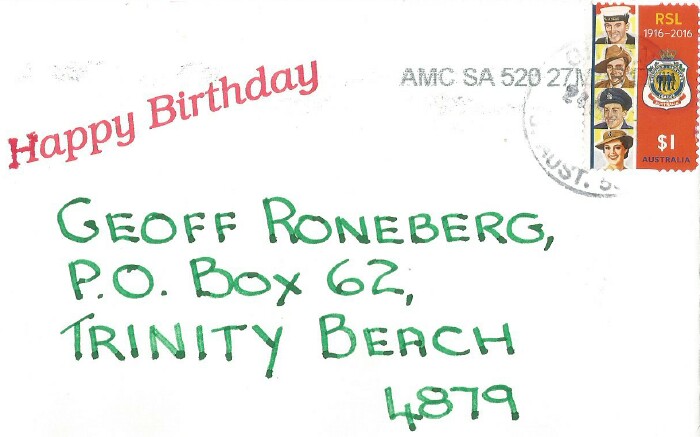 Happy Birthday
AMC SA 520 27M
RSL
1916-2016
$1
AUSTRALIA
AUST.
GEOFF RONEBERG,
P.O. BOX 62,
TRINITY BEACH
4879